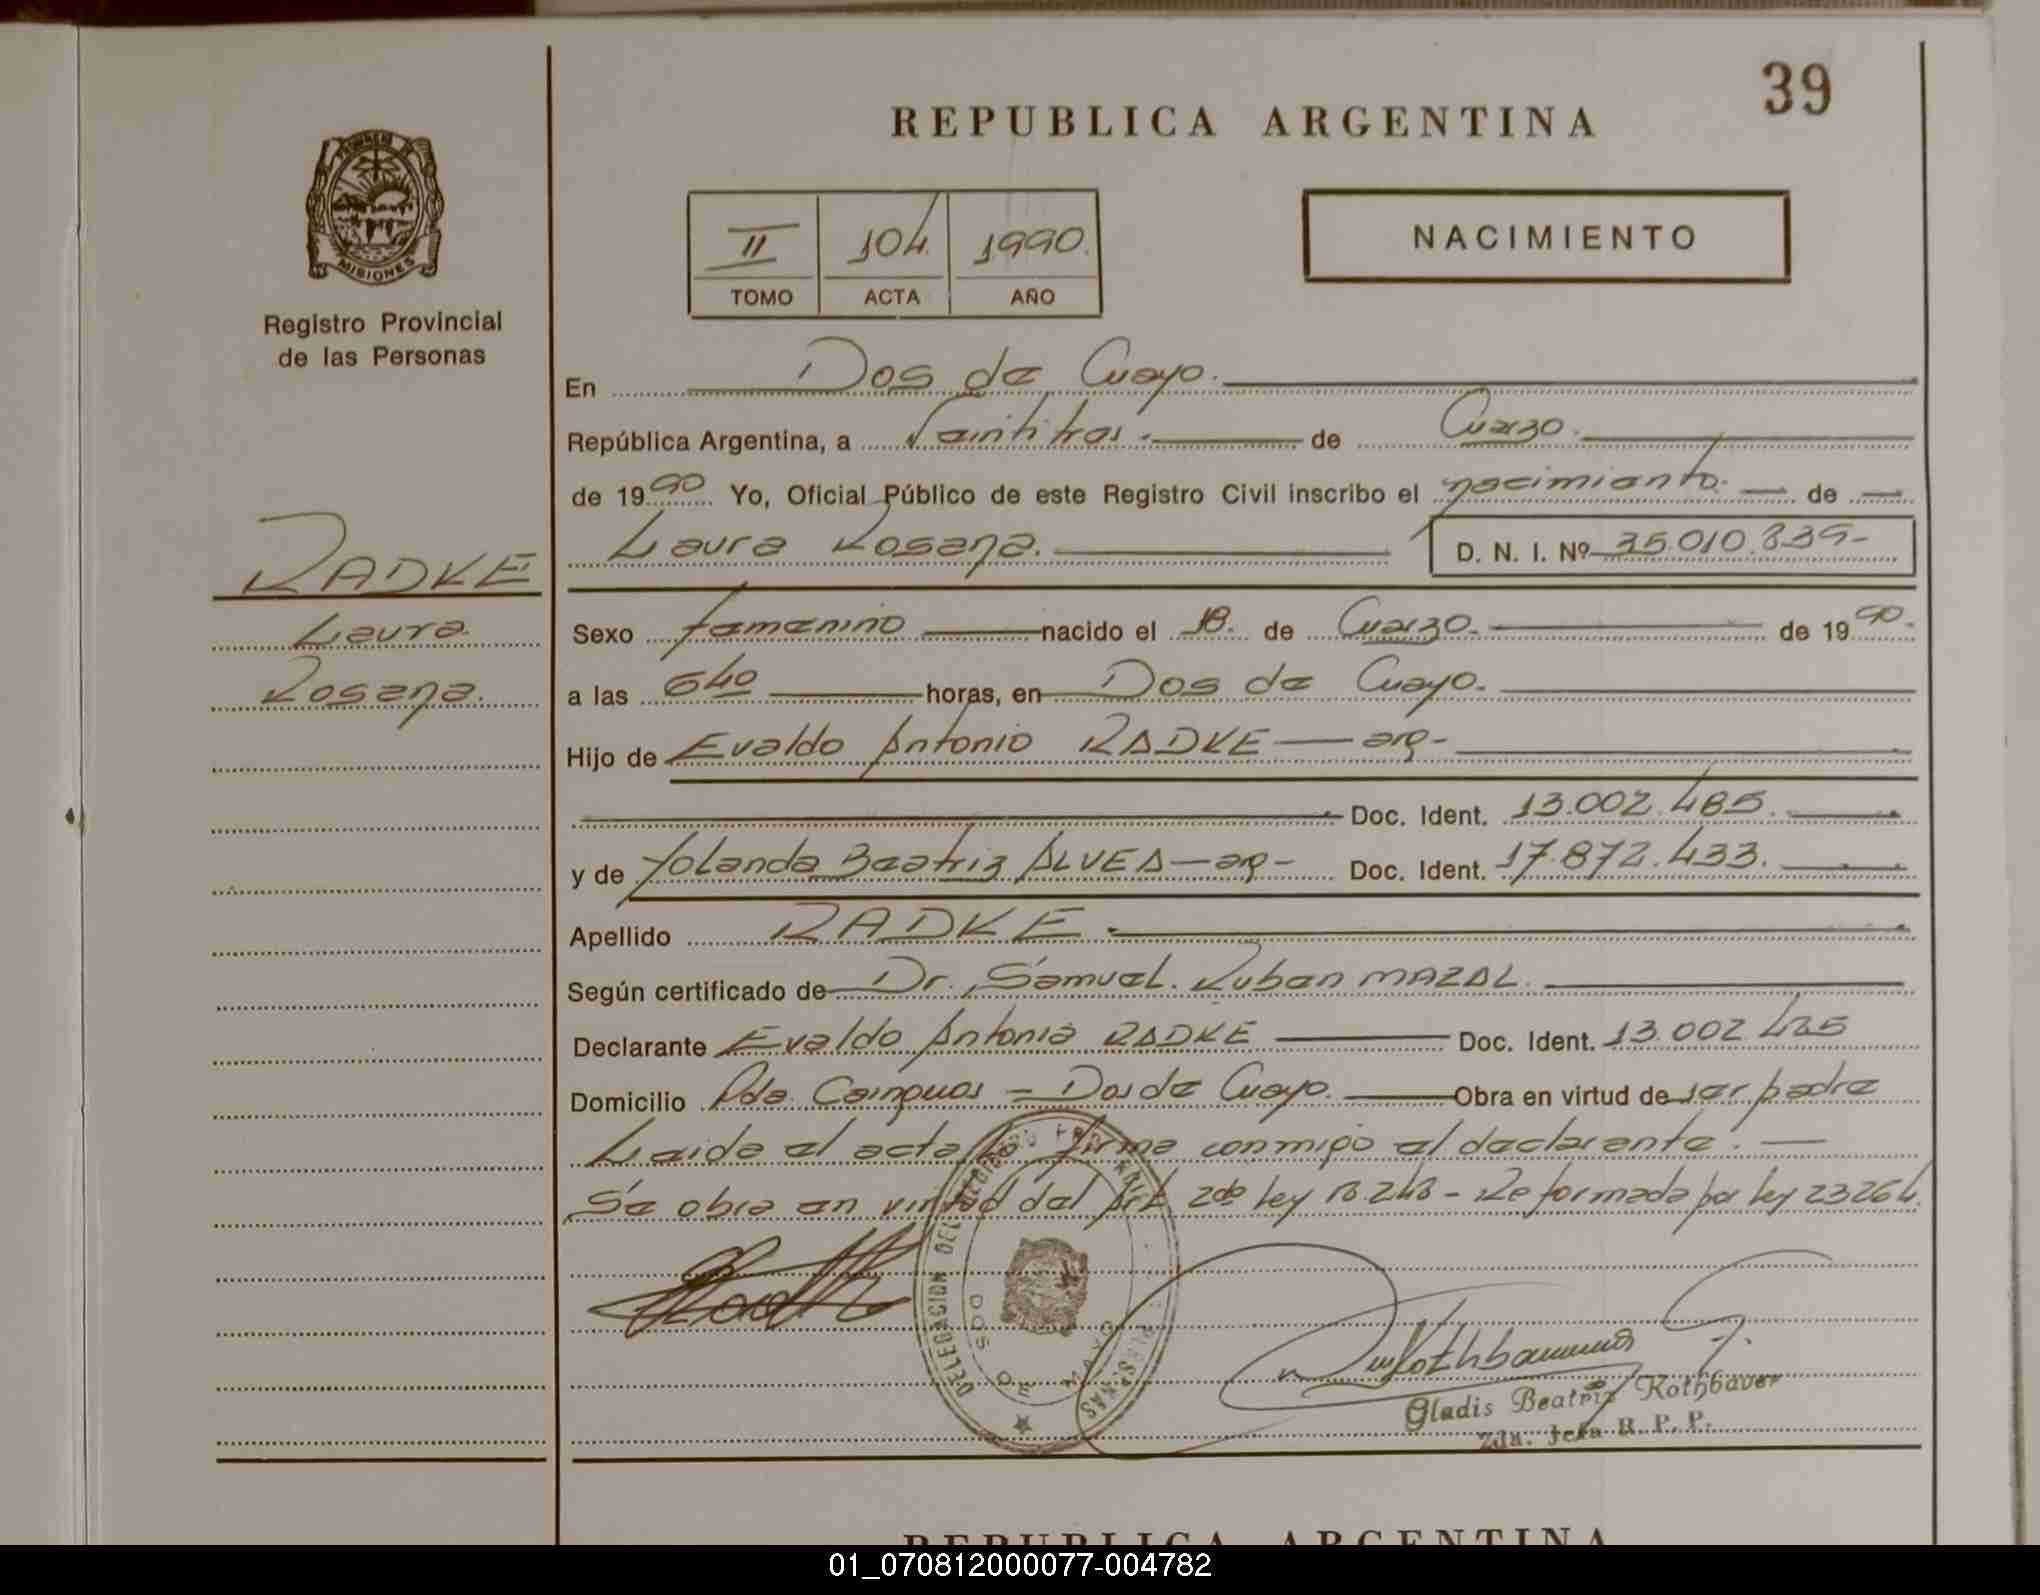 39
REPUBLICA ARGENTINA
PROVINCIA DE
MISIONES
Registro Provincial
de las Personas
II 104 1990.
TOMO ACTA AÑO
NACIMIENTO
En Dos de Mayo.
República Argentina, a Veintitres. de Marzo.
de 1990 Yo, Oficial Público de este Registro Civil inscribo el nacimiento. de
Laura Rosana. D. N. I. Nº 35.010.839-
RADKE
Laura
Rosana.
Sexo femenino nacido el 18. de Marzo. de 1990.
a las 640 horas, en Dos de Mayo.
Hijo de Evaldo Antonio RADKE — arg-
Doc. Ident. 13.002.485.
y de Yolanda Beatriz ALVEA — arg- Doc. Ident. 17.872.433.
Apellido RADKE.
Según certificado de Dr. Samuel. Ruben MAZAL.
Declarante Evaldo Antonio RADKE Doc. Ident. 13.002.485
Domicilio Pda. Cainguas = Dos de Mayo. Obra en virtud de ser padre
Leida el acta la firma conmigo el declarante. —
Se obra en virtud del Art. 2do ley 18248 - Reformada por ley 23264.
DELEGACION DEL REGISTRO PROVINCIAL PERSONAS
DOS DE MAYO
Rothbauer
Gladis Beatriz Rothbauer
2da. Jefa R. P. P.
REPUBLICA ARGENTINA
01_070812000077-004782